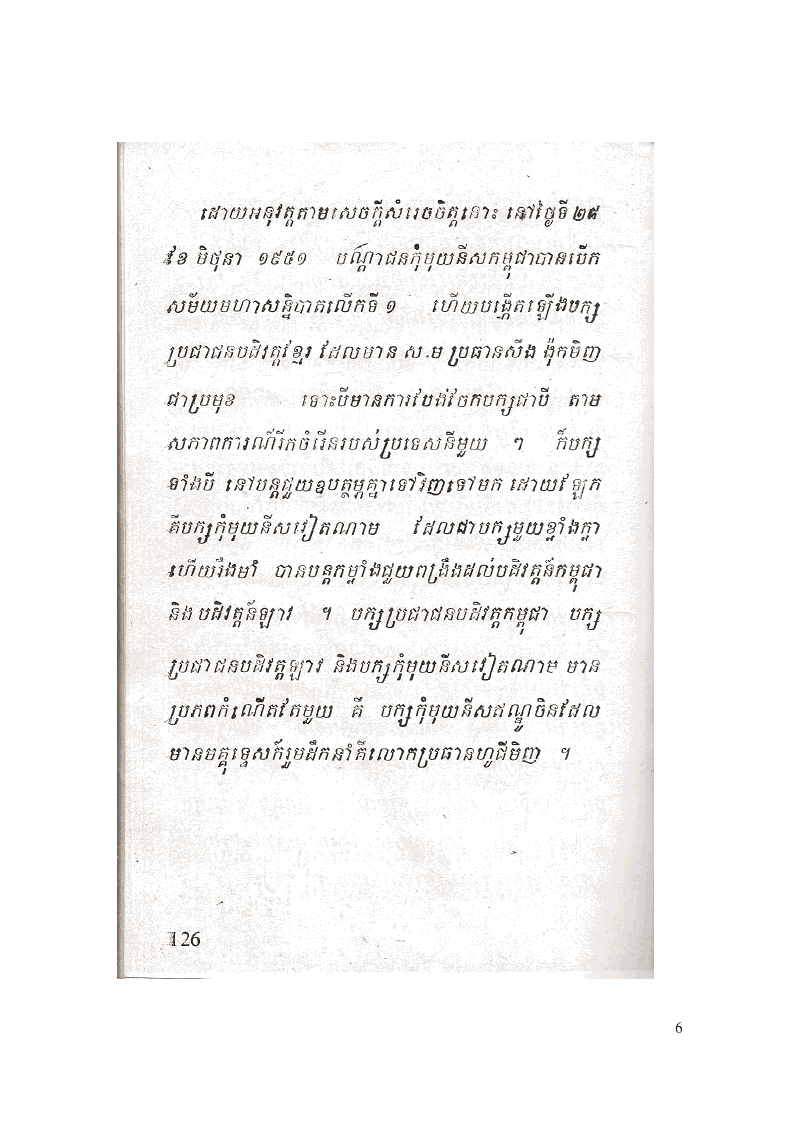 ដោយអនុវត្តតាមសេចក្តីសំរេចចិត្តនោះ នៅថ្ងៃទី ២៨
ខែ មិថុនា ១៩៥១ បណ្តាជនកុំមុយនីសកម្ពុជាបានបើក
សម័យមហាសន្និបាតលើកទី ១ ហើយបង្កើតឡើងបក្ស
ប្រជាជនបដិវត្តខ្មែរ ដែលមាន ស.ម ប្រធានសឺង ង៉ុកមិញ
ជាប្រមុខ ទោះបីមានការបែងចែកបក្សជាបី តាម
សភាពការណ៍រីកចំរើនរបស់ប្រទេសនីមួយ ៗ ក៏បក្ស
ទាំងបី នៅបន្តជួយឧបត្ថម្ភគ្នាទៅវិញទៅមក ដោយឡែក
គឺបក្សកុំមុយនីសវៀតណាម ដែលជាបក្សមួយខ្លាំងក្លា
ហើយរឹងមាំ បានបន្តកម្លាំងជួយពង្រឹងដល់បដិវត្តន៍កម្ពុជា
និង បដិវត្តន៍ឡាវ ។ បក្សប្រជាជនបដិវត្តកម្ពុជា បក្ស
ប្រជាជនបដិវត្តឡាវ និងបក្សកុំមុយនីសវៀតណាម មាន
ប្រភពកំណើតតែមួយ គឺ បក្សកុំមុយនីសឥណ្ឌូចិនដែល
មានមគ្គុទ្ទេសក៍រួមដឹកនាំគឺលោកប្រធានហូជីមិញ ។
126
6